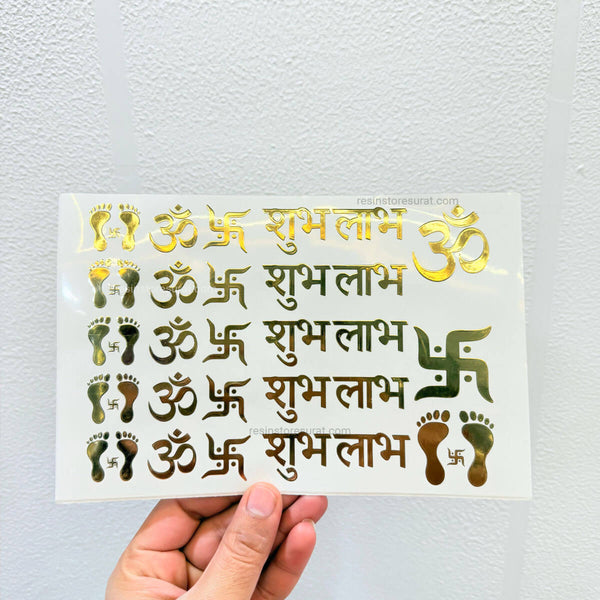 resinstoresurat.com
ॐ शुभ लाभ ॐ
ॐ शुभ लाभ
ॐ शुभ लाभ
ॐ शुभ लाभ
resinstoresurat.com
ॐ शुभ लाभ